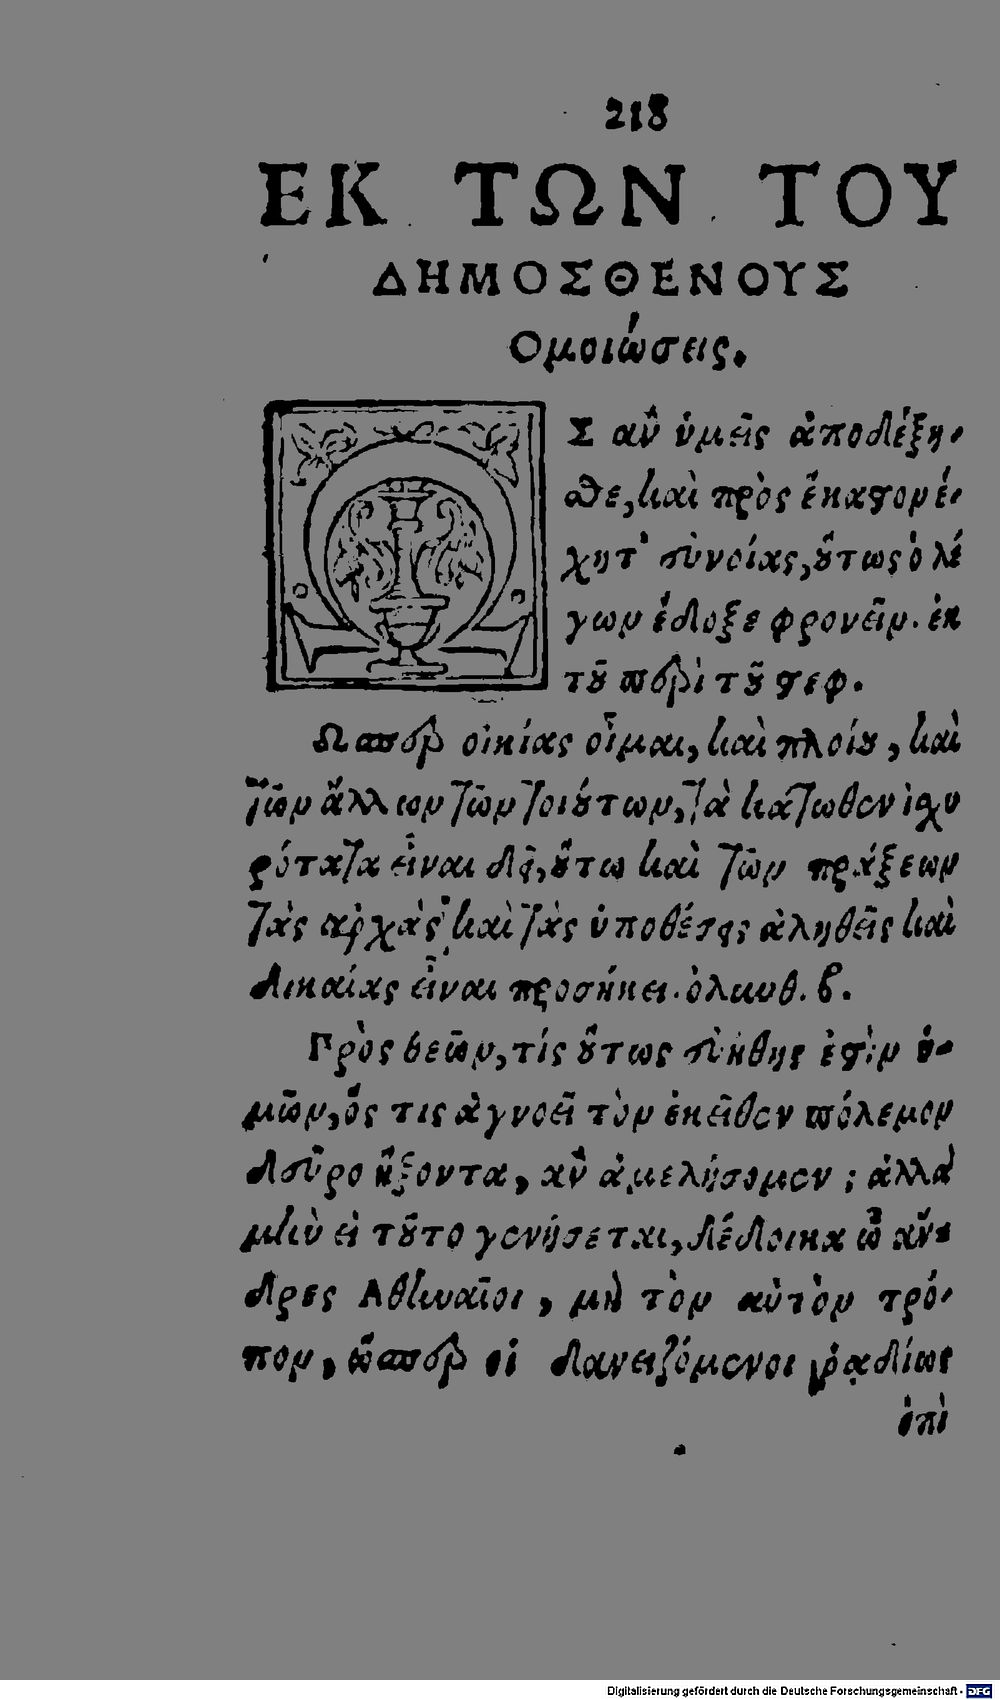 218
ΕΚ ΤΩΝ ΤΟΥ
ΔΗΜΟΣΘΕΝΟΥΣ
Ομοιώσεις.
ΩΣ ἂν ὑμεῖς ἀποδέξη-
σθε, καὶ πρὸς ἕκαστον ἔ-
χητ' εὐνοίας, οὕτως ὁ λέ
γων ἔδοξε φρονεῖν. ἐκ
τοῦ περὶ τοῦ στεφ.
Ωσπερ οἰκίας οἶμαι, καὶ πλοίου, καὶ
τῶν ἄλλων τῶν τοιούτων, τὰ κάτωθεν ἰσχυ
ρότατα εἶναι δεῖ, οὕτω καὶ τῶν πράξεων
τὰς ἀρχὰς καὶ τὰς ὑποθέσεις ἀληθεῖς καὶ
δικαίας εἶναι προσήκει. ὀλυνθ. β.
Πρὸς θεῶν, τίς οὕτως εὐήθης ἐστὶν ὑ-
μῶν, ὅς τις ἀγνοεῖ τὸν ἐκεῖθεν πόλεμον
δεῦρο ἥξοντα, ἂν ἀμελήσομεν; ἀλλὰ
μὴν εἰ τοῦτο γενήσεται, δέδοικα ὦ ἄν-
δρες Αθηναῖοι, μὴ τὸν αὐτὸν τρό-
πον, ὥσπερ οἱ δανειζόμενοι ῥᾳδίως
ἐπὶ
Digitalisierung gefördert durch die Deutsche Forschungsgemeinschaft - DFG